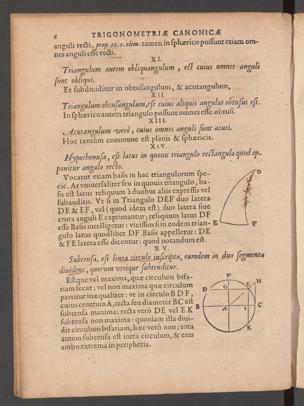 6 TRIGONOMETRIÆ CANONICÆ
anguli recti, prop. 32. 1. elem. tamen in sphærico possunt etiam om-
nes anguli esse recti.
XI.
Triangulum autem obliquangulum, est cuius omnes anguli
sunt obliqui.
Et subdividitur in obtusangulum, & acutangulum,
XII.
Triangulum obtusangulum, est cuius aliquis angulus obtusus est.
In sphærico autem triangulo possunt omnes esse obtusi.
XIII.
Acutangulum verò, cuius omnes anguli sunt acuti.
Hoc tantum commune est planis & sphæricis.
XIV.
Hypothenusa, est latus in quouis triangulo rectangulo quod op-
ponitur angulo recto.
Vocatur etiam basis in hac triangulorum spe-
cie. At vniuersaliter seu in quouis triangulo, ba-
sis est latus reliquum à duobus aliis expressis vel
subauditis. Vt si in Triangulo DEF duo latera
DE & EF, vel (quod idem est) duo latera siue
crura anguli E exprimantur, reliquum latus DF
esse Basis intelligetur: vicissim si in eodem trian-
gulo latus quodlibet DF Basis appelletur: DE
& FE latera esse dicentur: quod notandum est.
D
E F
XV.
Subtensa, est linea circulo inscripta, eumdem in duo segmenta
diuidens, quorum vtrique subtenditur.
Estque vel maxima, quæ circulum bifa-
riam secat; vel non maxima quæ circulum
partitur inæqualiter: vt in circulo BDF,
cuius centrum A, recta seu diameter BC est
subtensa maxima: recta verò DE vel EK
subtensa non maxima: quoniam illa diui-
dit circulum bifariam, hæc verò non; tota
autem subtensa est intra circulum, & eius
ambo extrema in peripheria.
F
D G E H
B A I C
K